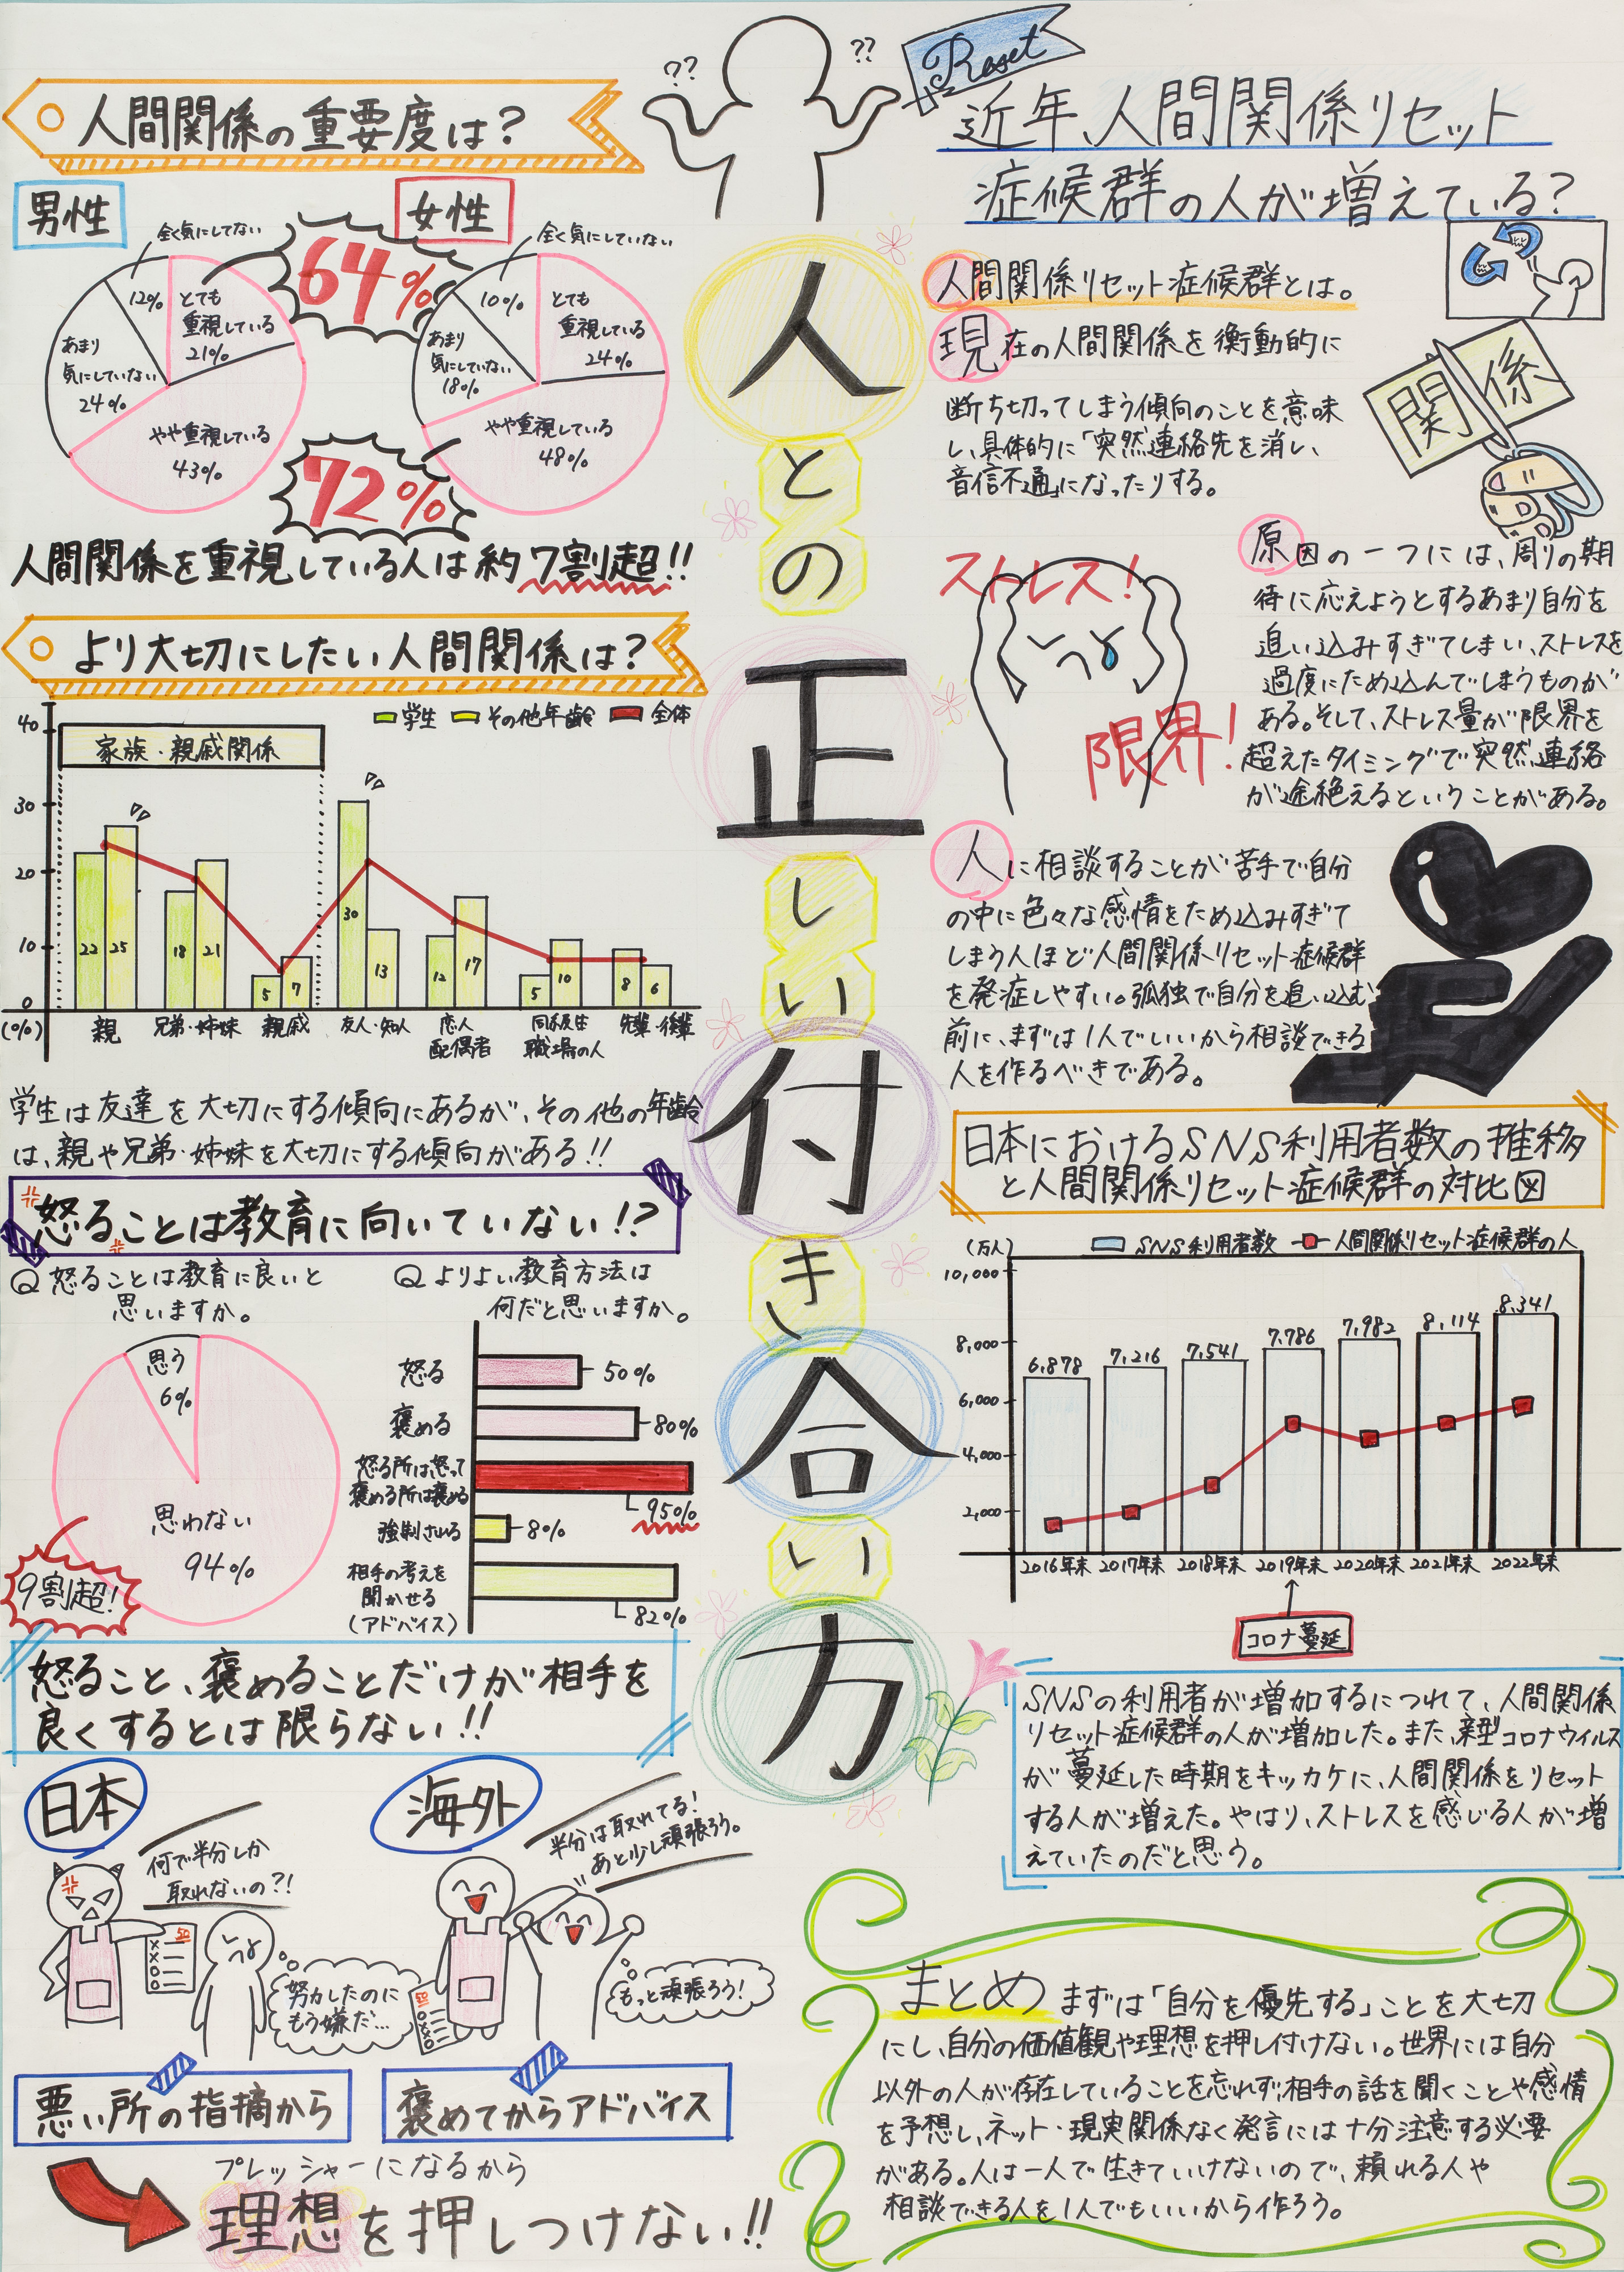 人との正しい付き合い方
人間関係の重要度は?
男性
全く気にしてない
12%
とても
重視している
21%
あまり
気にしていない
24%
やや重視している
43%
64%
女性
全く気にしていない
10%
とても
重視している
24%
あまり
気にしていない
18%
やや重視している
48%
72%
人間関係を重視している人は約7割超!!
より大切にしたい人間関係は?
学生 その他年齢 全体
家族・親戚関係
40
30
20
10
0
(%)
22 25 18 21 5 7 30 13 12 17 5 10 8 6
親 兄弟・姉妹 親戚 友人・知人 恋人 配偶者 同級生 職場の人 先輩・後輩
学生は友達を大切にする傾向にあるが、その他の年齢
は、親や兄弟・姉妹を大切にする傾向がある!!
怒ることは教育に向いていない!?
Q 怒ることは教育に良いと
思いますか。
思う
6%
思わない
94%
9割超!
Q よりよい教育方法は
何だと思いますか。
怒る 50%
褒める 80%
怒る所は怒って
褒める所は褒める
95%
強制させる 8%
相手の考えを
聞かせる
(アドバイス)
82%
怒ること、褒めることだけが相手を
良くするとは限らない!!
日本
何で半分しか
取れないの?!
50
努力したのに
もう嫌だ…
海外
半分は取れてる!
あと少し頑張ろう。
50
もっと頑張ろう!
悪い所の指摘から
褒めてからアドバイス
プレッシャーになるから
理想を押しつけない!!
?? ??
Reset
近年、人間関係リセット
症候群の人が増えている?
人間関係リセット症候群とは。
現在の人間関係を衝動的に
断ち切ってしまう傾向のことを意味
し、具体的に「突然連絡先を消し、
音信不通」になったりする。
関係
ストレス!
限界!
原因の一つには、周りの期
待に応えようとするあまり自分を
追い込みすぎてしまい、ストレスを
過度にため込んでしまうものが
ある。そして、ストレス量が限界を
超えたタイミングで突然、連絡
が途絶えるということがある。
人に相談することが苦手で自分
の中に色々な感情をため込みすぎて
しまう人ほど人間関係リセット症候群
を発症しやすい。孤独で自分を追い込む
前に、まずは1人でいいから相談できる
人を作るべきである。
日本におけるSNS利用者数の推移
と人間関係リセット症候群の対比図
(万人)
SNS利用者数 人間関係リセット症候群の人
10,000
8,000
6,000
4,000
2,000
6,878 7,216 7,541 7,786 7,982 8,114 8,341
2016年末 2017年末 2018年末 2019年末 2020年末 2021年末 2022年末
コロナ蔓延
SNSの利用者が増加するにつれて、人間関係
リセット症候群の人が増加した。また、新型コロナウイルス
が蔓延した時期をキッカケに、人間関係をリセット
する人が増えた。やはり、ストレスを感じる人が増
えていたのだと思う。
まとめ まずは「自分を優先する」ことを大切
にし、自分の価値観や理想を押し付けない。世界には自分
以外の人が存在していることを忘れず、相手の話を聞くことや感情
を予想し、ネット・現実関係なく発言には十分注意する必要
がある。人は一人で生きていけないので、頼れる人や
相談できる人を1人でもいいから作ろう。